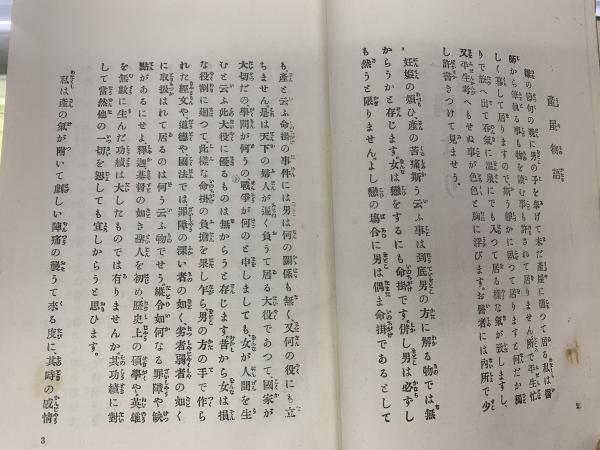 産屋物語
雛の節句の晩に男の子を挙げて未だ産屋に籠つて居る私は医
師から筆執る事も物を読む事も許されて居りません所で平生忙
しく暮して居りますので斯う静かに臥つて居りますと何だか独
りで旅へ出て呑気に温泉にでも入つて居る様な気が致しますし、
又平生考へもせぬ事が色色と胸に浮びます。お医者には内所で少
し許書きつけて見ませう。
妊娠の煩ひ、産の苦痛斯う云ふ事は到底男の方に解る物では無
からうかと存じます。女は恋をするにも命掛です。併し男は必ずし
も然うと限りません。よし恋の場合に男は偶ま命掛であるとして
2
も産と云ふ命掛の事件には男は何の関係も無く、又何の役にも立
ちません。是は天下の婦人が遍く負うて居る大役であつて、国家が
大切だの学問が何うの、戦争が何のと申しましても女が人間を生
むと云ふ此大役に優るものは無からうと存じます。昔から女は損
な役割に廻つて此様な命掛の負担を果し乍ら、男の方の手で作ら
れた経文や道徳や国法では罪障の深い者の如く、劣者弱者の如く
に取扱はれて居るのは何う云ふ物でせう。縦令如何なる罪障や欠
点があるにせよ、釈迦基督の如き聖人を初め歴史上の碩学や英雄
を無数に生んだ功績は大したものでは有りませんか。其功績に対
して当然他の一切を恕しても宜しからうと思ひます。
私は産の気が附いて劇しい陣痛の襲うて来る度に、其時の感情
3